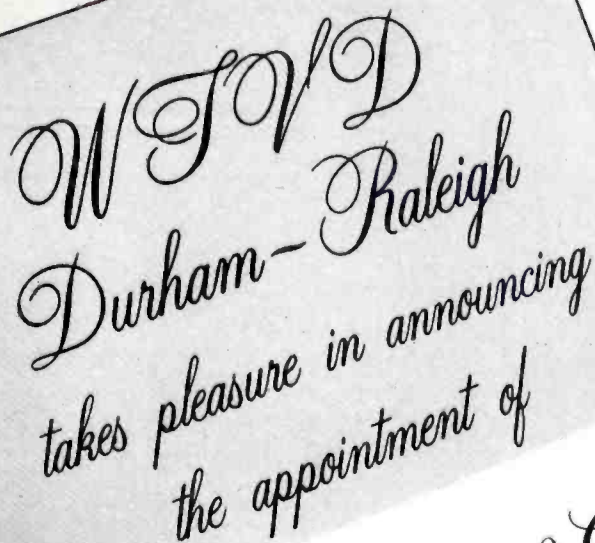 WTVD
Durham-Raleigh
takes pleasure in announcing
the appointment of